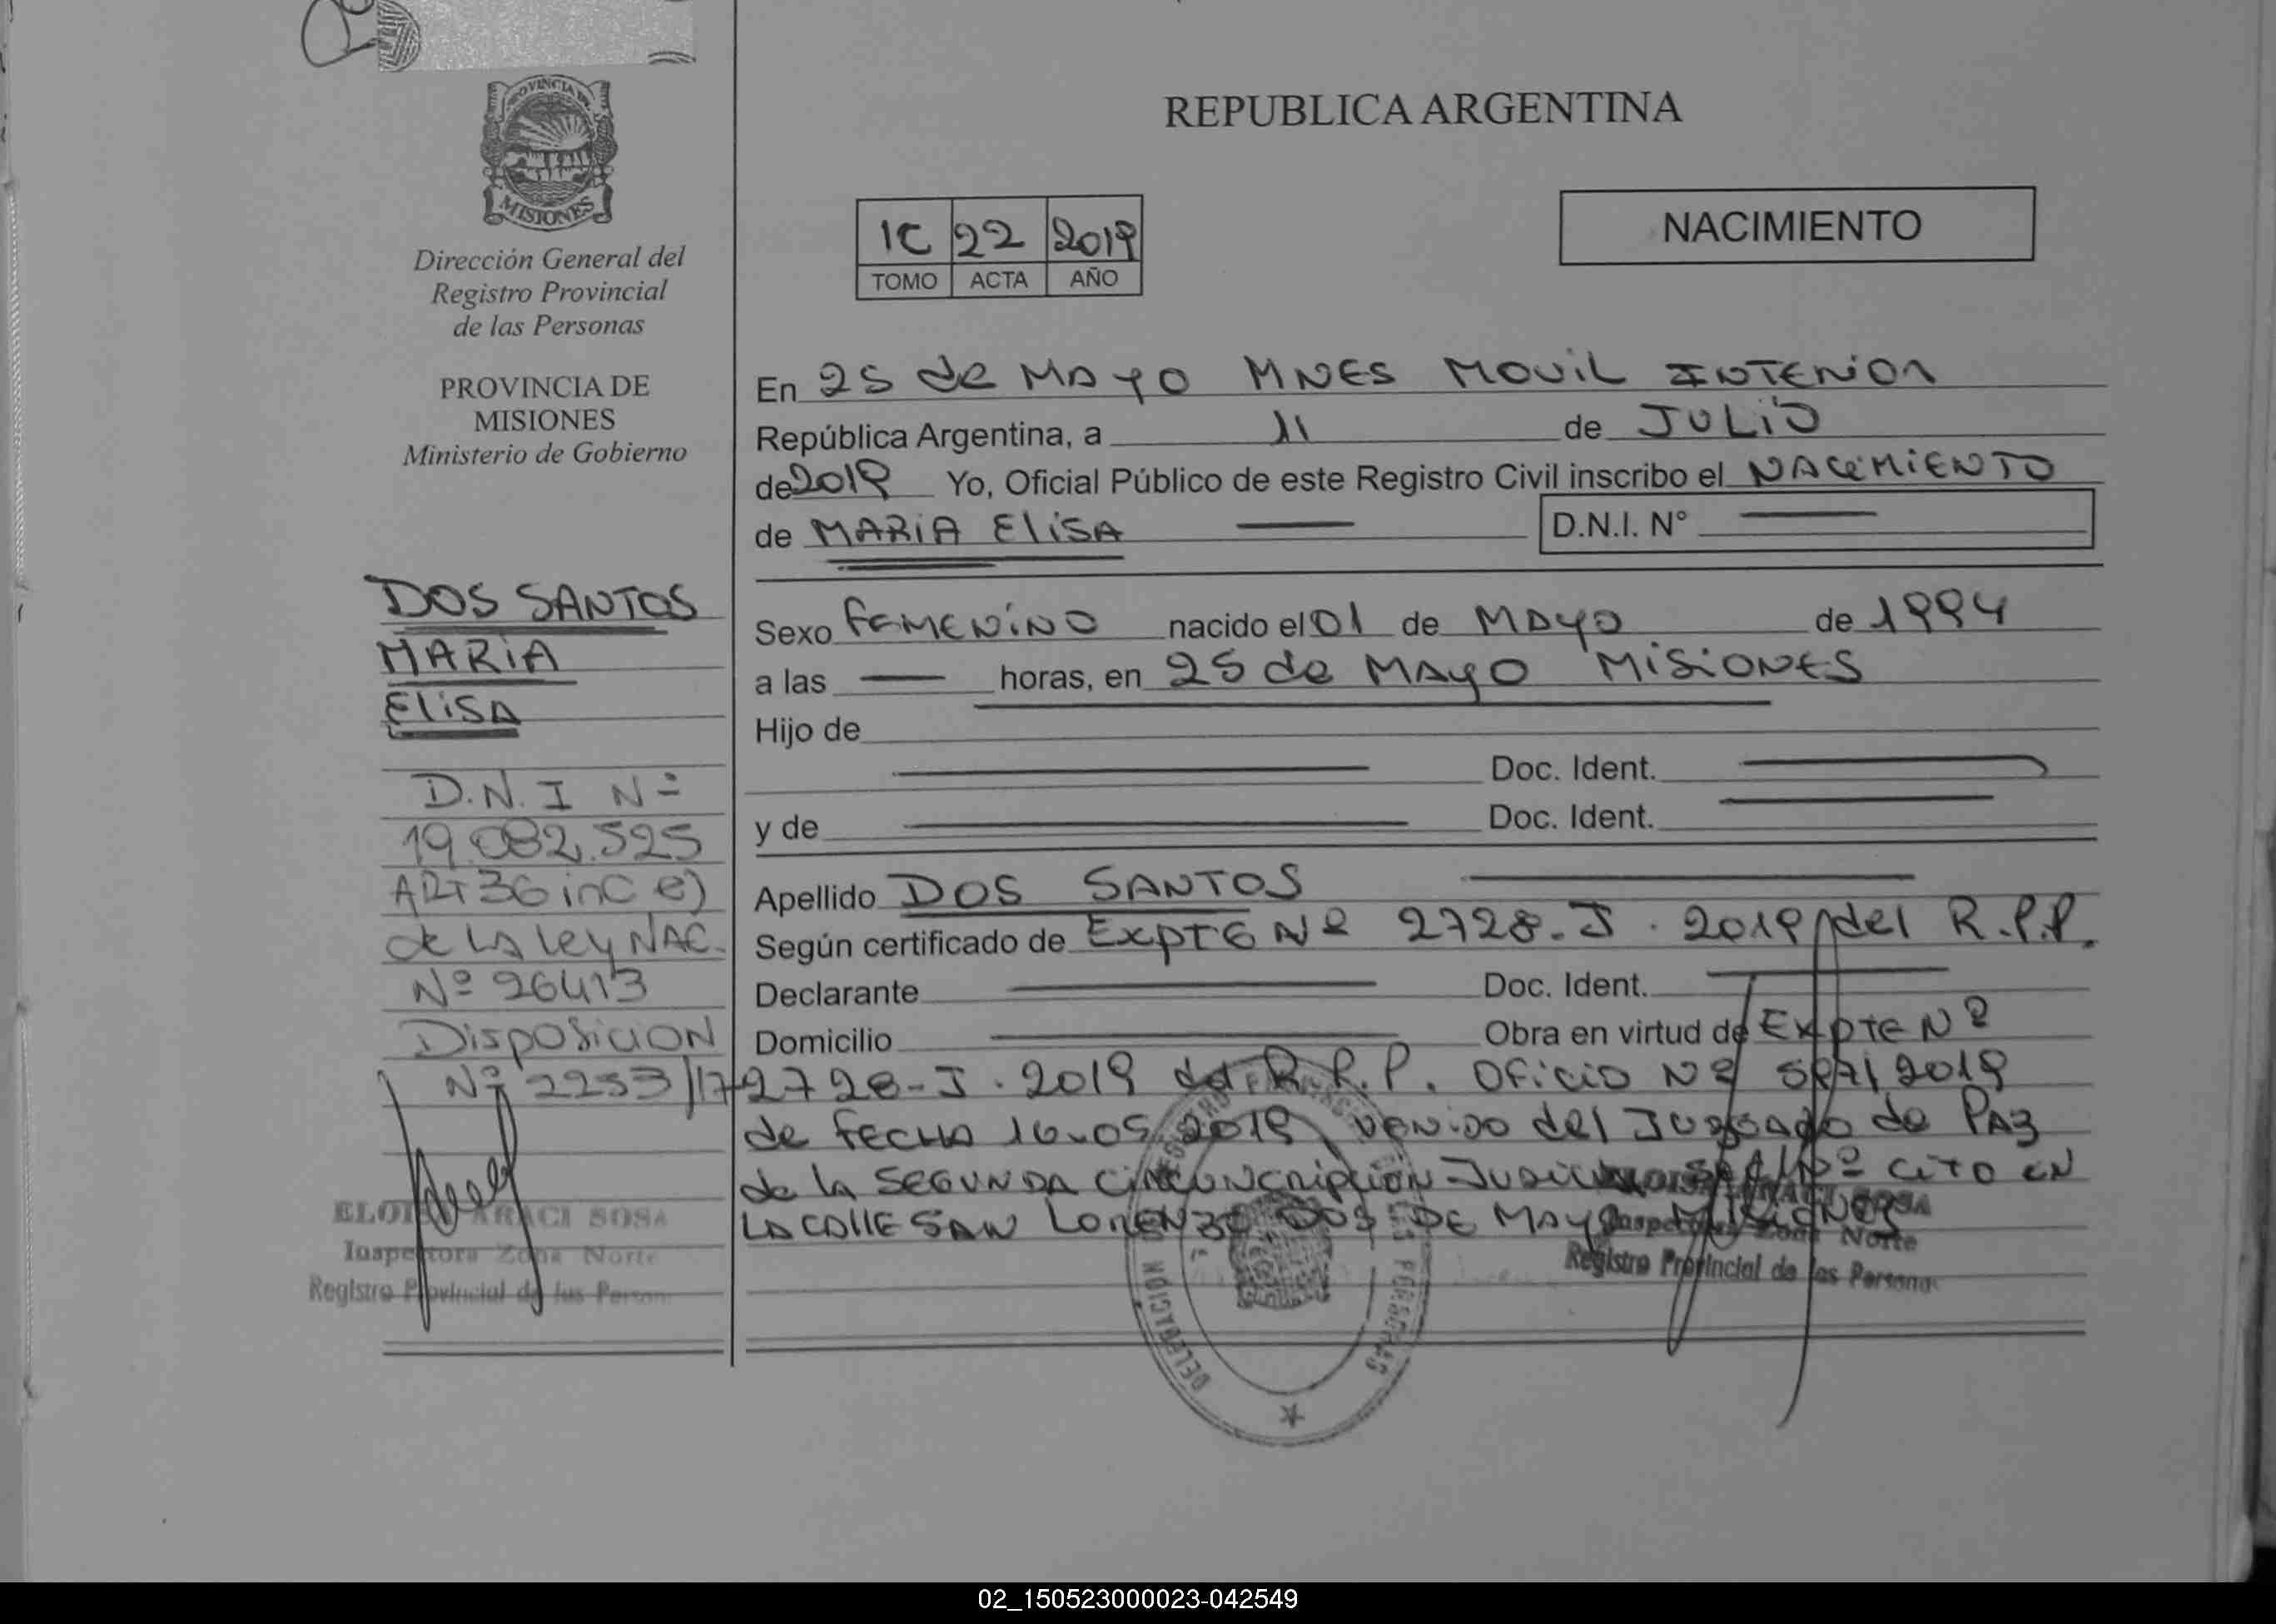 PROVINCIA DE
MISIONES
Dirección General del
Registro Provincial
de las Personas
PROVINCIA DE
MISIONES
Ministerio de Gobierno
DOS SANTOS
MARIA
ELISA
D.N.I Nº
19.082.525
ART 36 inc e)
de LA Ley NAC.
Nº 26413
Disposicion
Nº 2253/17
Inspectora Zona Norte
Registro Provincial de las Person
REPUBLICA ARGENTINA
NACIMIENTO
1C 22 2019
TOMO ACTA AÑO
En 25 de MAYO MNES MOVIL INTERIOR
República Argentina, a 11 de JULIO
de 2019 Yo, Oficial Público de este Registro Civil inscribo el NACIMIENTO
de MARIA ELISA D.N.I. N°
Sexo FEMENINO nacido el 01 de MAYO de 1994
a las horas, en 25 de MAYO MISIONES
Hijo de
Doc. Ident.
y de Doc. Ident.
Apellido DOS SANTOS
Según certificado de EXPTE Nº 2728-J-2019 del R.P.P.
Declarante Doc. Ident.
Domicilio Obra en virtud de EXPTE Nº
2728-J-2019 del R.P.P. OFICIO Nº 2019
de FECHA 2019 del JUZGADO de PAZ
de la SEGUNDA CIRCUNCRIPCION CITO EN
LA CALLE SAN LORENZO DE MAYO MISIONES
Inspectora Zona Norte
Registro Provincial de las Persona
DELEGACIÓN PERSONAS
02_150523000023-042549